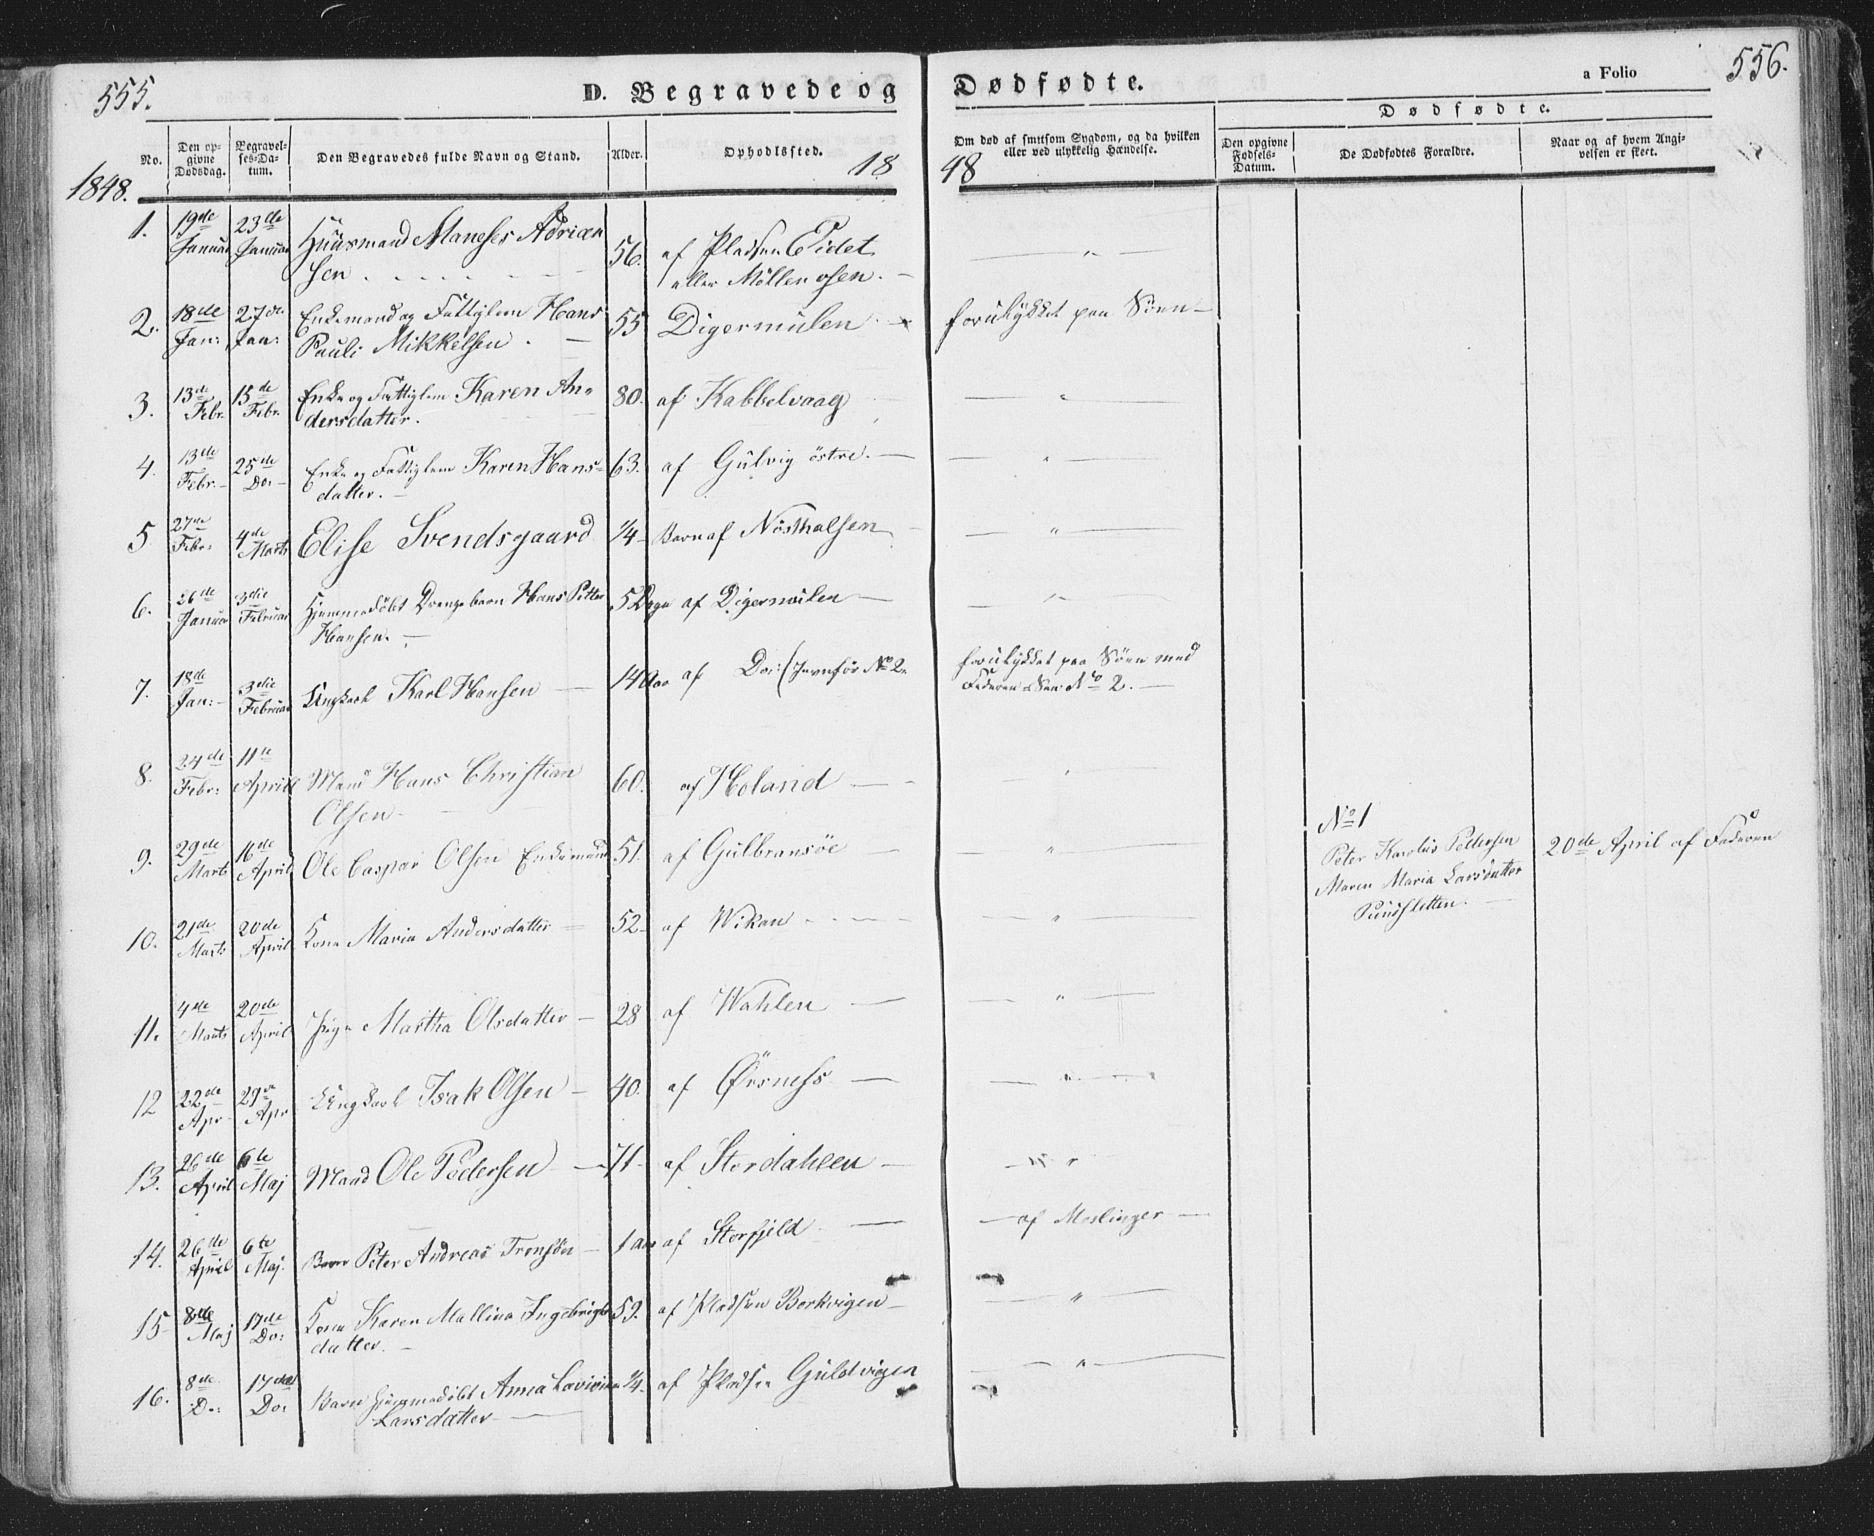 555.
D. Begravede og
Dødfødte.
a Folio
556.
Dødfødte.
No.
Den op-
givne
Dødsdag.
Begravel-
ses-Da-
tum.
Den Begravedes fulde Navn og Stand.
Alder.
Opholdssted.
Om død af smitsom Sygdom, og da hvilken
eller ved ulykkelig Hændelse.
Den opgivne
Fødsels-
Datum.
De Dødfødtes Forældre.
Naar og af hvem Angi-
velsen er skeet.
1848.
18
48
1. 19de Januar 23de Januar Huusmand Maneses Adrian
sen 56. af Pladsen Eidet
eller Möllenosen. "
2. 18de Jan: 27de Jan: Enkemand og Fattiglem Hans
Pauli Mikkelsen. 55 Digermulen forulykket paa Söen
3. 13de Febr. 15de Febr. Enke og Fattiglem Karen An-
dersdatter. 80. af Kabbelvaag "
4. 13de Febr. 25de Do. Enke og Fattiglem Karen Hans-
datter. 63. af Gulvig östre. "
5 27de Febr. 4de Marts Elise Svendsgaard 1/4 Barn af Nösthalsen "
6. 26de Januar 3die Februar Hjemmedöbt Drengebarn Hans Petter
Hansen. 5 Dage af Digermulen "
7. 18de Jan: 3die Februar Ungkarl Karl Hansen 14 Aar af Do: (Jevnför No 2. forulykket paa Söen med
Faderen See No 2.
8. 24de Febr: 11te April Mand Hans Christian
Olsen 60. af Holand "
9. 29de Marts 16de April Ole Caspar Olsen Enkemand 51. af Gulbransöe "
10. 21de Marts 20de April Kone Maria Andersdatter 52 af Wikan "
11. 4de Marts 20de April Pige Martha Olsdatter 28 af Wahlen "
12 22de Apr 29de Apr Ungkarl Isak Olsen 40. af Örsness "
13. 26de April 6te Maj Mand Ole Pedersen 71 af Stordahlen "
14. 26de April 6te Maj. Barn Peter Andreas Tronsen 1 aar af Storfjeld af Meslinger
15 8de Maj 17de Do: Kone Karen Mallina Ingebrigts
datter. 59. af Pladsen Borkvigen "
16. 8de Do: 17de Do: Barn hjemmedöbt Anna Lovise
Larsdatter 1/4 af Pladsen Guldvigen "
No 1
Peter Karolius Pedersen
Maren Maria Larsdatter
20de April af Faderen